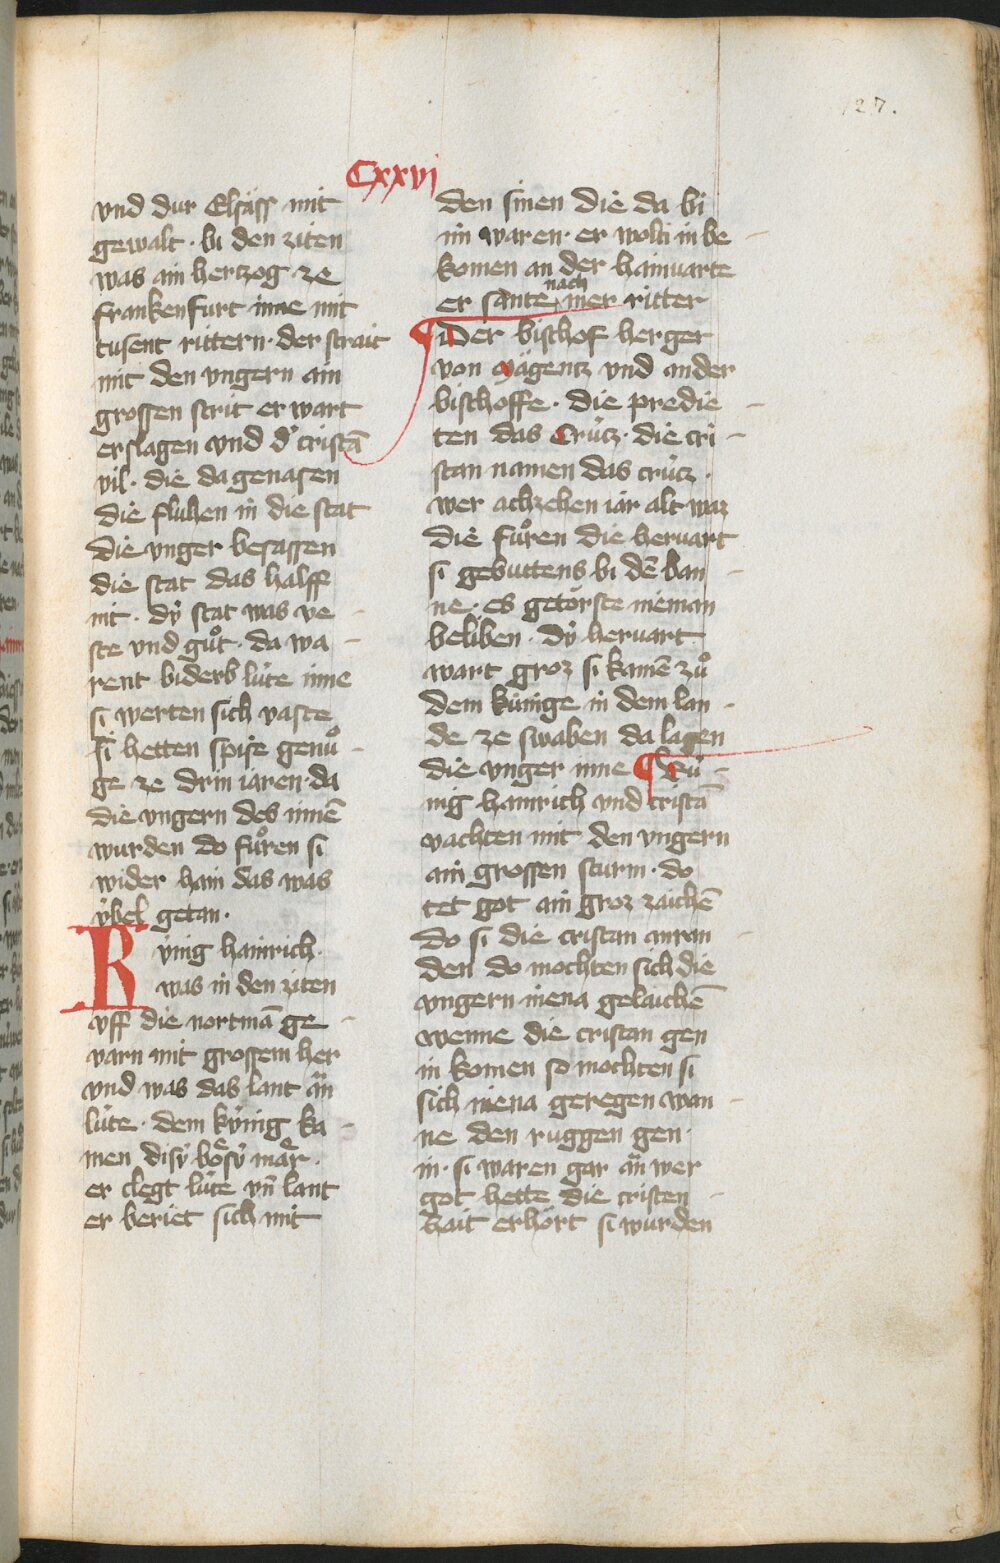 127.
Cxxvi
vnd dur Elsäss mit
gewalt · bi den ziten
was ain hertzog ze
frankenfurt inne mit
tusent rittern · der strait
mit den vngern ain
grossen strit er wart
erslagen vnd d' cristā
vil · die da genasen
die fluhen in die stat
die vnger besassen
die stat das halff
nit · dÿ stat was ve -
ste vnd guͦt · da wa -
rent biderb lúte inne
si werten sich vaste
si hetten spise genuͦ -
ge ze drin iaren · da
die vngern des innē
wurden do fuͦren si
wider hain das was
v́bel getan ·
Kv́nig hainrich ·
was in den ziten
vff die nortmā ge -
varn mit grossem her
vnd was das lant ān
lúte · dem kv́nig ka -
men disÿ boͤsÿ maͤr ·
er clegt lúte vn̄ lant
er beriet sich mit
den sinen die da bi
im waren · er wolti in be -
komen an der hainuarte
er sante nach mer ritter
Der bischof herger
von Mägentz vnd ander
bischoffe · die predie -
ten das Crútz · die cri -
stan namen das crútz ·
wer achzehen iar alt waz
die fuͦren die heruart
si gebuttens bi dē ban -
ne · es getorste nieman
beliben · dÿ heruart
wart groz si kamē zuͦ
dem kúnige in dem lan -
de ze swaben da lagen
die vnger inne Kú -
nig hainrich vnd cristā
vachten mit den vngern
ain grossen sturm · do
tet got ain groz zaichē
do si die cristan anran -
den do mochten sich die
vngern niena gelaichē
wenne die cristan gen
in komen so mochten si
sich niena geregen wan -
ne den ruggen gen ·
in · si waren gar ān wer
got hette die cristen -
hait erhört si wurden